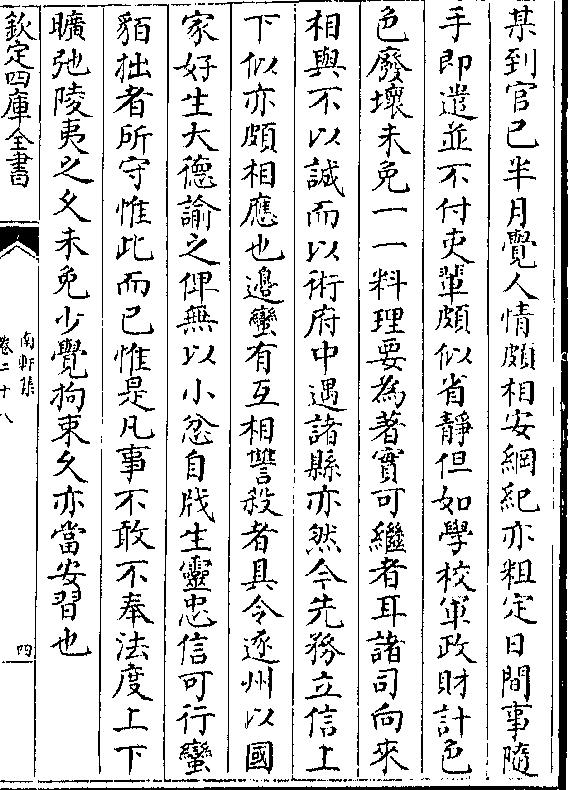 某到官已半月覺人情頗相安綱紀亦粗定日間事隨
手即遣並不付吏輩頗似省靜但如學校軍政財計色
色廢壞未免一一料理要為著實可繼者耳諸司向來
相與不以誠而以術府中遇諸縣亦然今先務立信上
下似亦頗相應也邊蠻有互相讐殺者具令逐州以國
家好生大德諭之俾無以小忿自戕生靈忠信可行蠻
貊拙者所守惟此而已惟是凡事不敢不奉法度上下
曠弛陵夷之久未免少覺拘束久亦當安習也
欽定四庫全書
南軒集
卷二十八
四